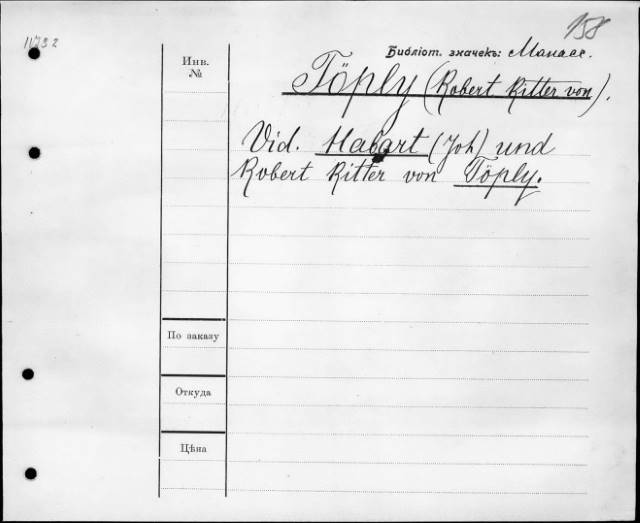 158
11732
Библіот. значекъ: Манасс.
Инв.
№
Töply (Robert Ritter von).
Vid. Habart (Joh) und
Robert Ritter von Töply.
По заказу
Откуда
Цѣна